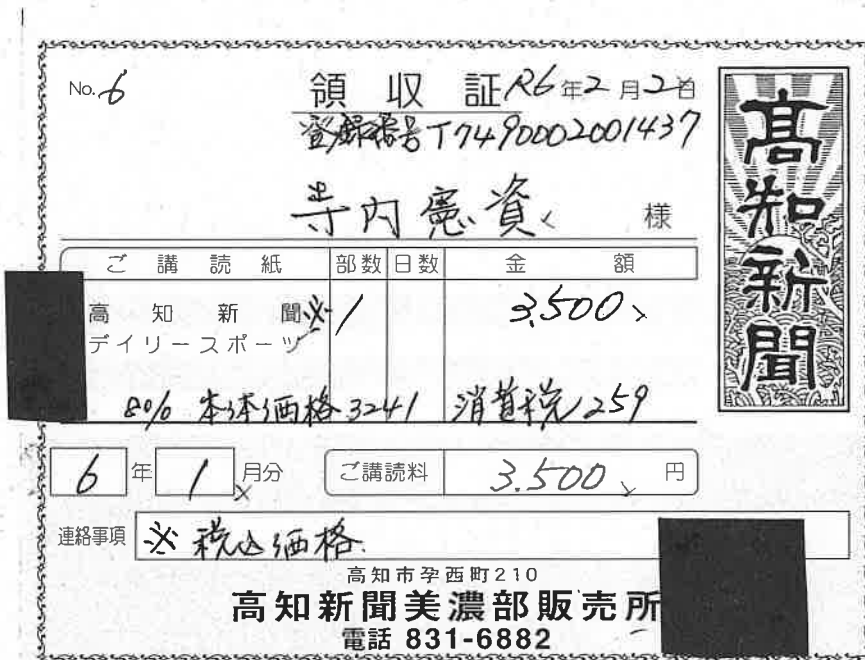 No. 6
領収証 R6年2月2日
登録番号T7490002001437
寺内憲資 様
ご購読紙 部数 日数 金額
高知新聞※ 1 3,500
デイリースポーツ
8% 本体価格3241 消費税259
6年1月分 ご購読料 3.500円
連絡事項 ※税込価格
高知市孕西町210
高知新聞美濃部販売所
電話 831-6882
高知新聞